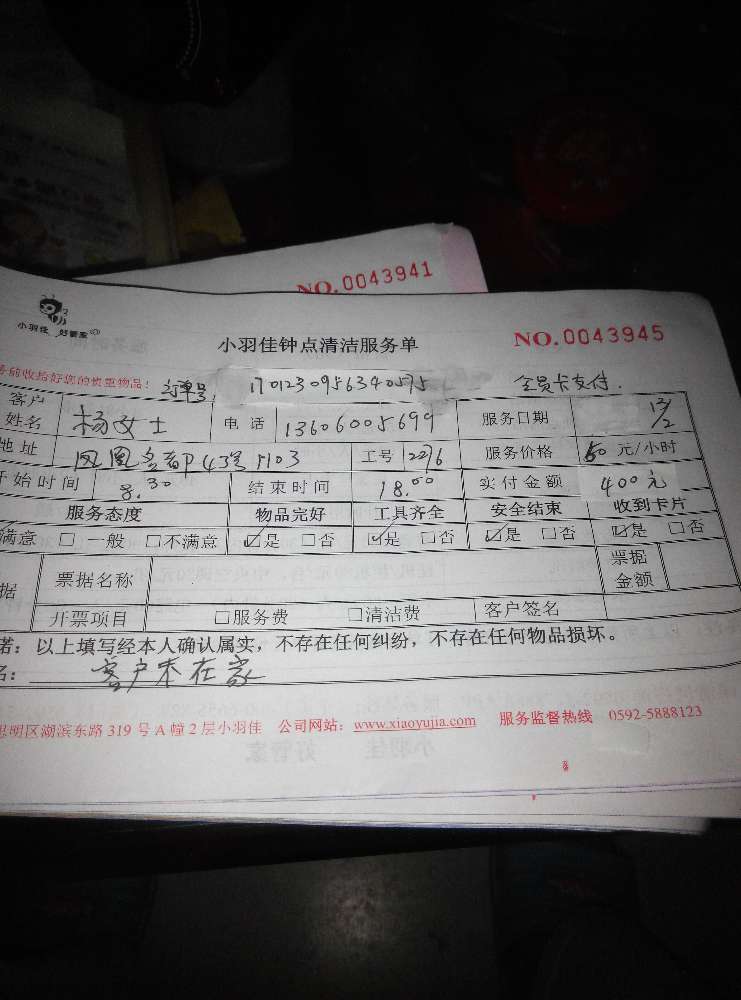 NO.0043941
小羽佳 好管家
小羽佳钟点清洁服务单 NO.0043945
务前收拾好您的贵重物品! 订单号 1701230956340575 会员卡支付.
客户姓名 杨女士 电话 13606005699 服务日期 12/2
地址 凤凰名都P43号1103 工号 2276 服务价格 50 元/小时
开始时间 8.30 结束时间 18.00 实付金额 400元
服务态度 物品完好 工具齐全 安全结束 收到卡片
满意 □一般 □不满意 ☑是 □否 ☑是 □否 ☑是 □否 ☑是 □否
据 票据名称 票据金额
开票项目 □服务费 □清洁费 客户签名
诺:以上填写经本人确认属实,不存在任何纠纷,不存在任何物品损坏。
名: 客户不在家
思明区湖滨东路319号A幢2层小羽佳 公司网站:www.xiaoyujia.com 服务监督热线 0592-5888123